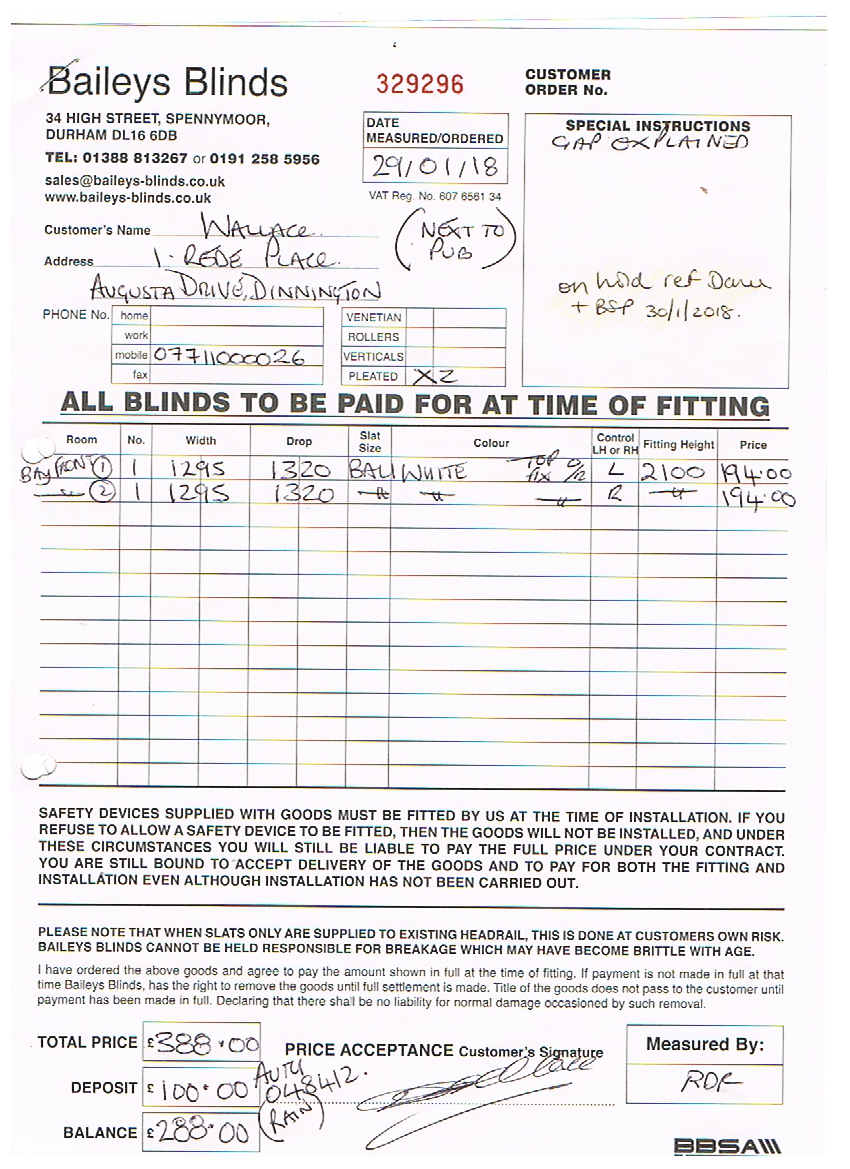 Baileys Blinds
34 HIGH STREET, SPENNYMOOR,
DURHAM DL16 6DB
TEL: 01388 813267 or 0191 258 5956
sales@baileys-blinds.co.uk
www.baileys-blinds.co.uk
329296
DATE
MEASURED/ORDERED
29/01/18
VAT Reg. No. 607 6561 34
CUSTOMER
ORDER No.
SPECIAL INSTRUCTIONS
GAP EXPLAINED
on hold ref
+ BSP 30/1/2018.
Customer's Name WALLACE.
(NEXT TO
PUB)
Address 1. REDE PLACE.
AUGUSTA DRIVE, DINNINGTON
PHONE No. home
work
mobile 07711000026
fax
VENETIAN
ROLLERS
VERTICALS
PLEATED X2
ALL BLINDS TO BE PAID FOR AT TIME OF FITTING
Room No. Width Drop Slat Size Colour Control LH or RH Fitting Height Price
BAY FRONT (1) 1 1295 1320 BALI WHITE TOP FIX O/R L 2100 194.00
— " — (2) 1 1295 1320 — " — — " — — " — R — " — 194.00
SAFETY DEVICES SUPPLIED WITH GOODS MUST BE FITTED BY US AT THE TIME OF INSTALLATION. IF YOU
REFUSE TO ALLOW A SAFETY DEVICE TO BE FITTED, THEN THE GOODS WILL NOT BE INSTALLED, AND UNDER
THESE CIRCUMSTANCES YOU WILL STILL BE LIABLE TO PAY THE FULL PRICE UNDER YOUR CONTRACT.
YOU ARE STILL BOUND TO ACCEPT DELIVERY OF THE GOODS AND TO PAY FOR BOTH THE FITTING AND
INSTALLATION EVEN ALTHOUGH INSTALLATION HAS NOT BEEN CARRIED OUT.
PLEASE NOTE THAT WHEN SLATS ONLY ARE SUPPLIED TO EXISTING HEADRAIL, THIS IS DONE AT CUSTOMERS OWN RISK.
BAILEYS BLINDS CANNOT BE HELD RESPONSIBLE FOR BREAKAGE WHICH MAY HAVE BECOME BRITTLE WITH AGE.
I have ordered the above goods and agree to pay the amount shown in full at the time of fitting. If payment is not made in full at that
time Baileys Blinds, has the right to remove the goods until full settlement is made. Title of the goods does not pass to the customer until
payment has been made in full. Declaring that there shall be no liability for normal damage occasioned by such removal.
TOTAL PRICE £388.00
DEPOSIT £100.00
BALANCE £288.00
AUTH
048412.
(RAIN)
PRICE ACCEPTANCE Customer's Signature
Measured By:
RDF
BBSA